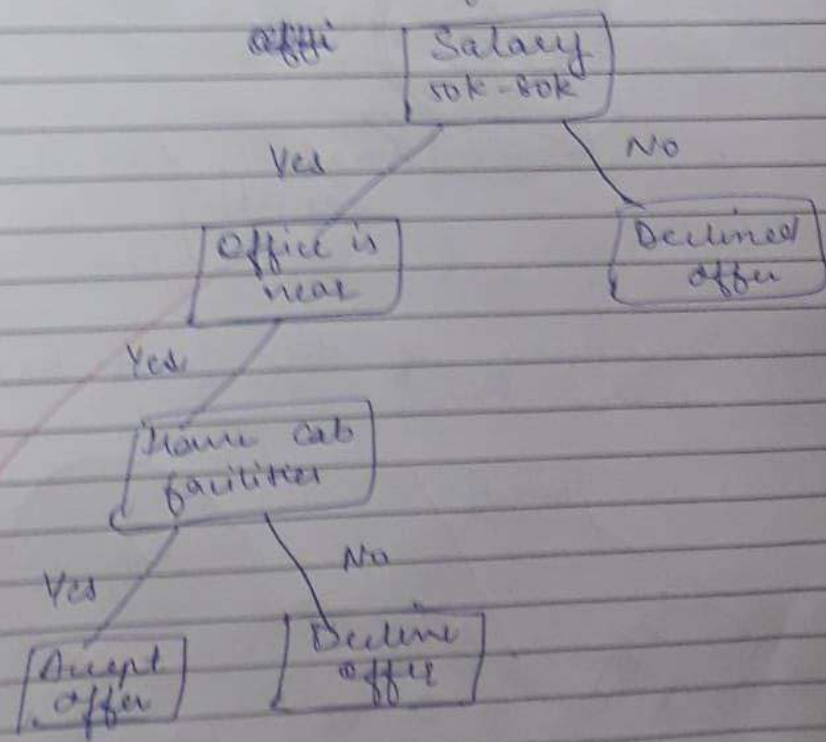 Salary
50k-80k
Yes
No
Office is
near
Declined
offer
Yes
Home Cab
facilities
Yes
No
Accept
offer
Decline
offer